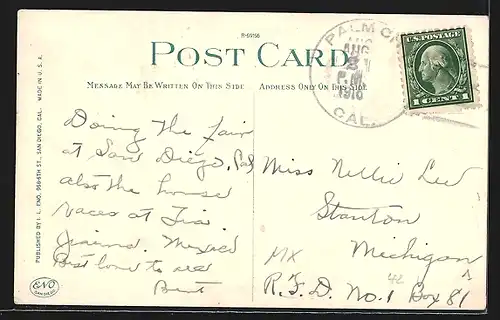 R-59156
POST CARD
MESSAGE MAY BE WRITTEN ON THIS SIDE
ADDRESS ONLY ON THIS SIDE
PALM
AUG
P.M.
1916
CAL.
U.S. POSTAGE
1 CENT 1
PUBLISHED BY I. L. ENO, 956-5TH ST., SAN DIEGO, CAL. MADE IN U. S. A.
ENO
SAN DIEGO
Doing the fair
at San Diego, Cal
also the house
races at Tia
Mexico
Best love to
Bert
Miss Nellie
Stanton
Michigan
R.F.D. No. 1 Box 81
MX
42